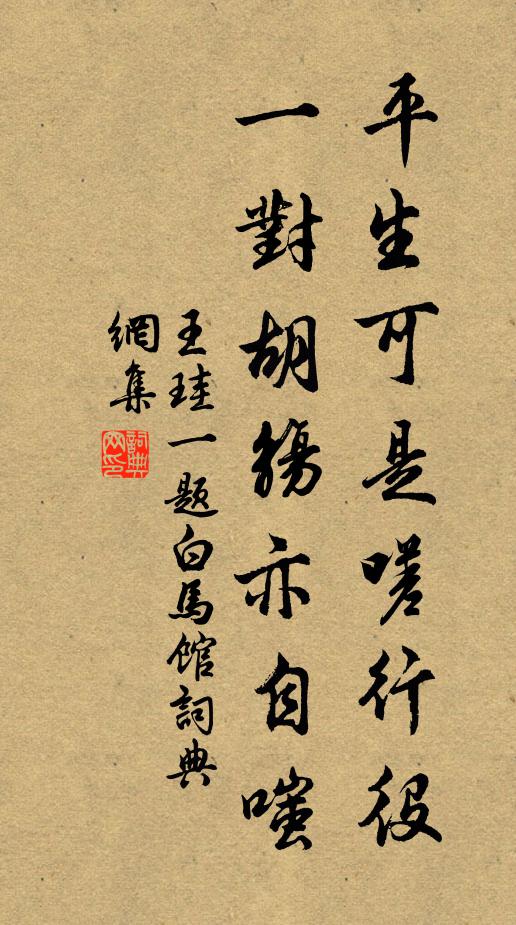 平生可是嗟行役
一對胡觴亦自嗤
王珪一題白馬館詞典
網集
詞典
网印